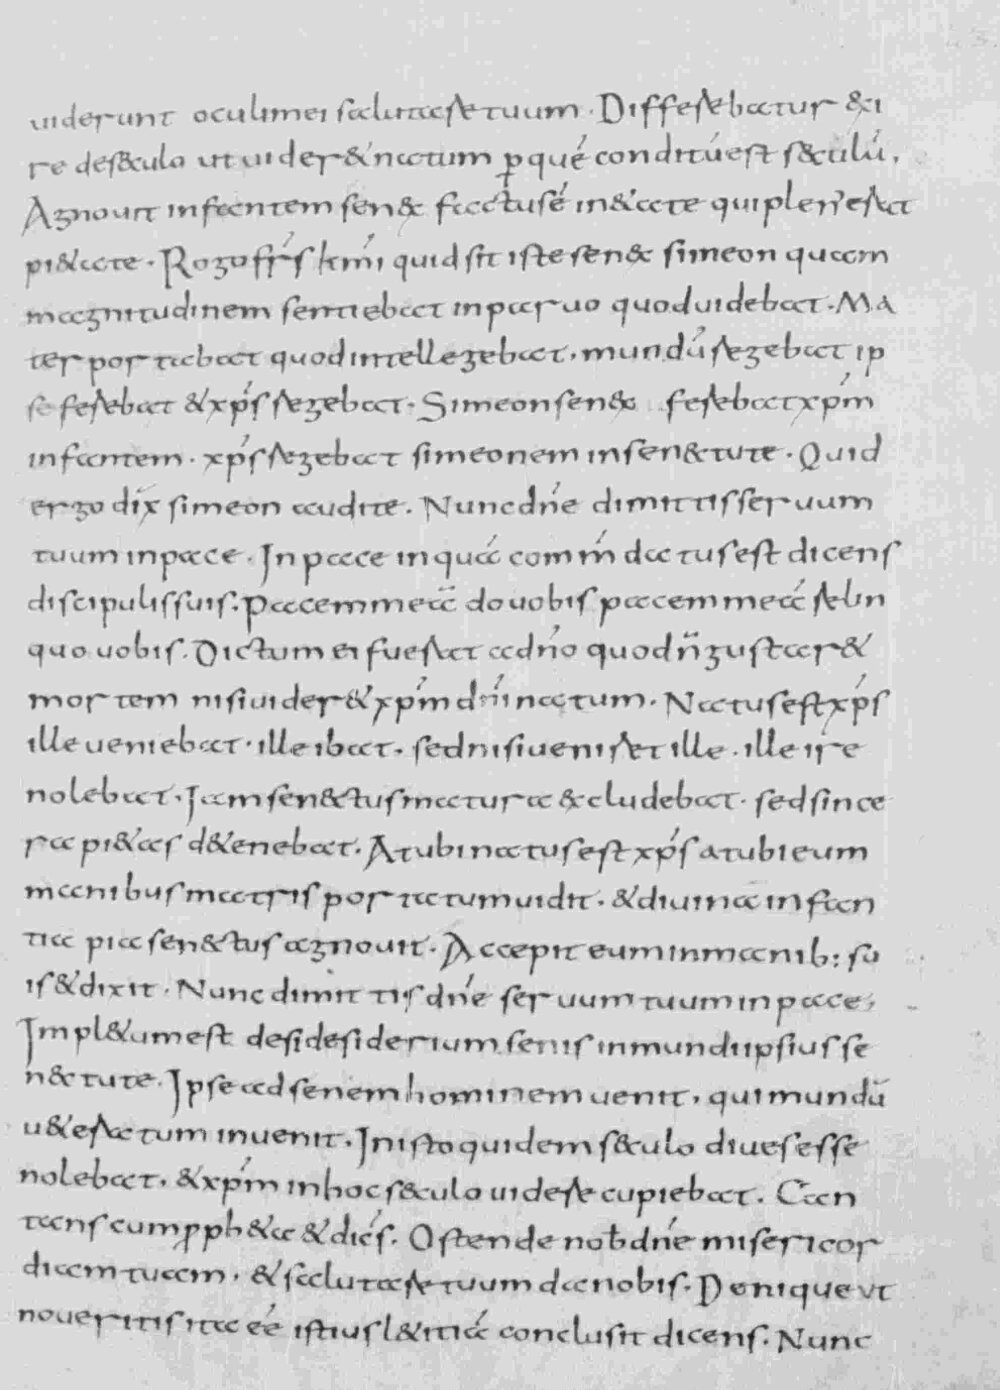 uiderunt oculimei salutare tuum. Differebatur &i
re de s&culo ut uider&natum p̱ qué conditúest s&culū,
Agnouit infantem senex factusé in&ate qui plen'erat
pi&ate. Rogo fr̄s km̄i quid sit iste senex simeon quam
magnitudinem sentiebat inparuo quoduidebat. Ma
ter portabat quod intellegebat, mundū regebat ip
se ferebat &xp̄s regebat. Simeon senex ferebat xp̄m
infantem. xp̄s regebat simeonem insen&tute. Quid
ergo dix̄ simeon audite. Nunc dn̄e dimittis seruum
tuum inpace. In pace inquá comm̄datus est dicens
discipulis suis. pacem meā do uobis pacem meā relin
quo uobis. Dictum ei fuerat adn̄o quod n̄ gustar&
mortem nisi uider& xp̄m dn̄i natum. Natus est xp̄s
ille ueniebat. ille ibat. sed nisi ueniret ille. ille ire
nolebat. Iam senectus matura &cludebat. sed since
ra pi&as d&enebat. At ubi natus est xp̄s at ubi eum
manibus matris portatum uidit. &diuinā infan
tia pia senectus agnouit. Accepit eum inmanib: su
is &dixit. Nunc dimittis dn̄e seruum tuum in pace,
Impl&um est desidesiderium senis in mundi ipsius se
n&tute. Ipse ad senem hominem uenit, qui mundū
u&eratum inuenit. In isto quidem s&culo diu esse
nolebat, &xp̄m inhoc s&culo uidere cupiebat. Can
tans cum p̱ph&a &dicēs. Ostende nob̄ dn̄e misericor
diam tuam, &salutare tuum da nobis. Denique ut
noueritis ita eé istius l&itiá conclusit dicens. Nunc